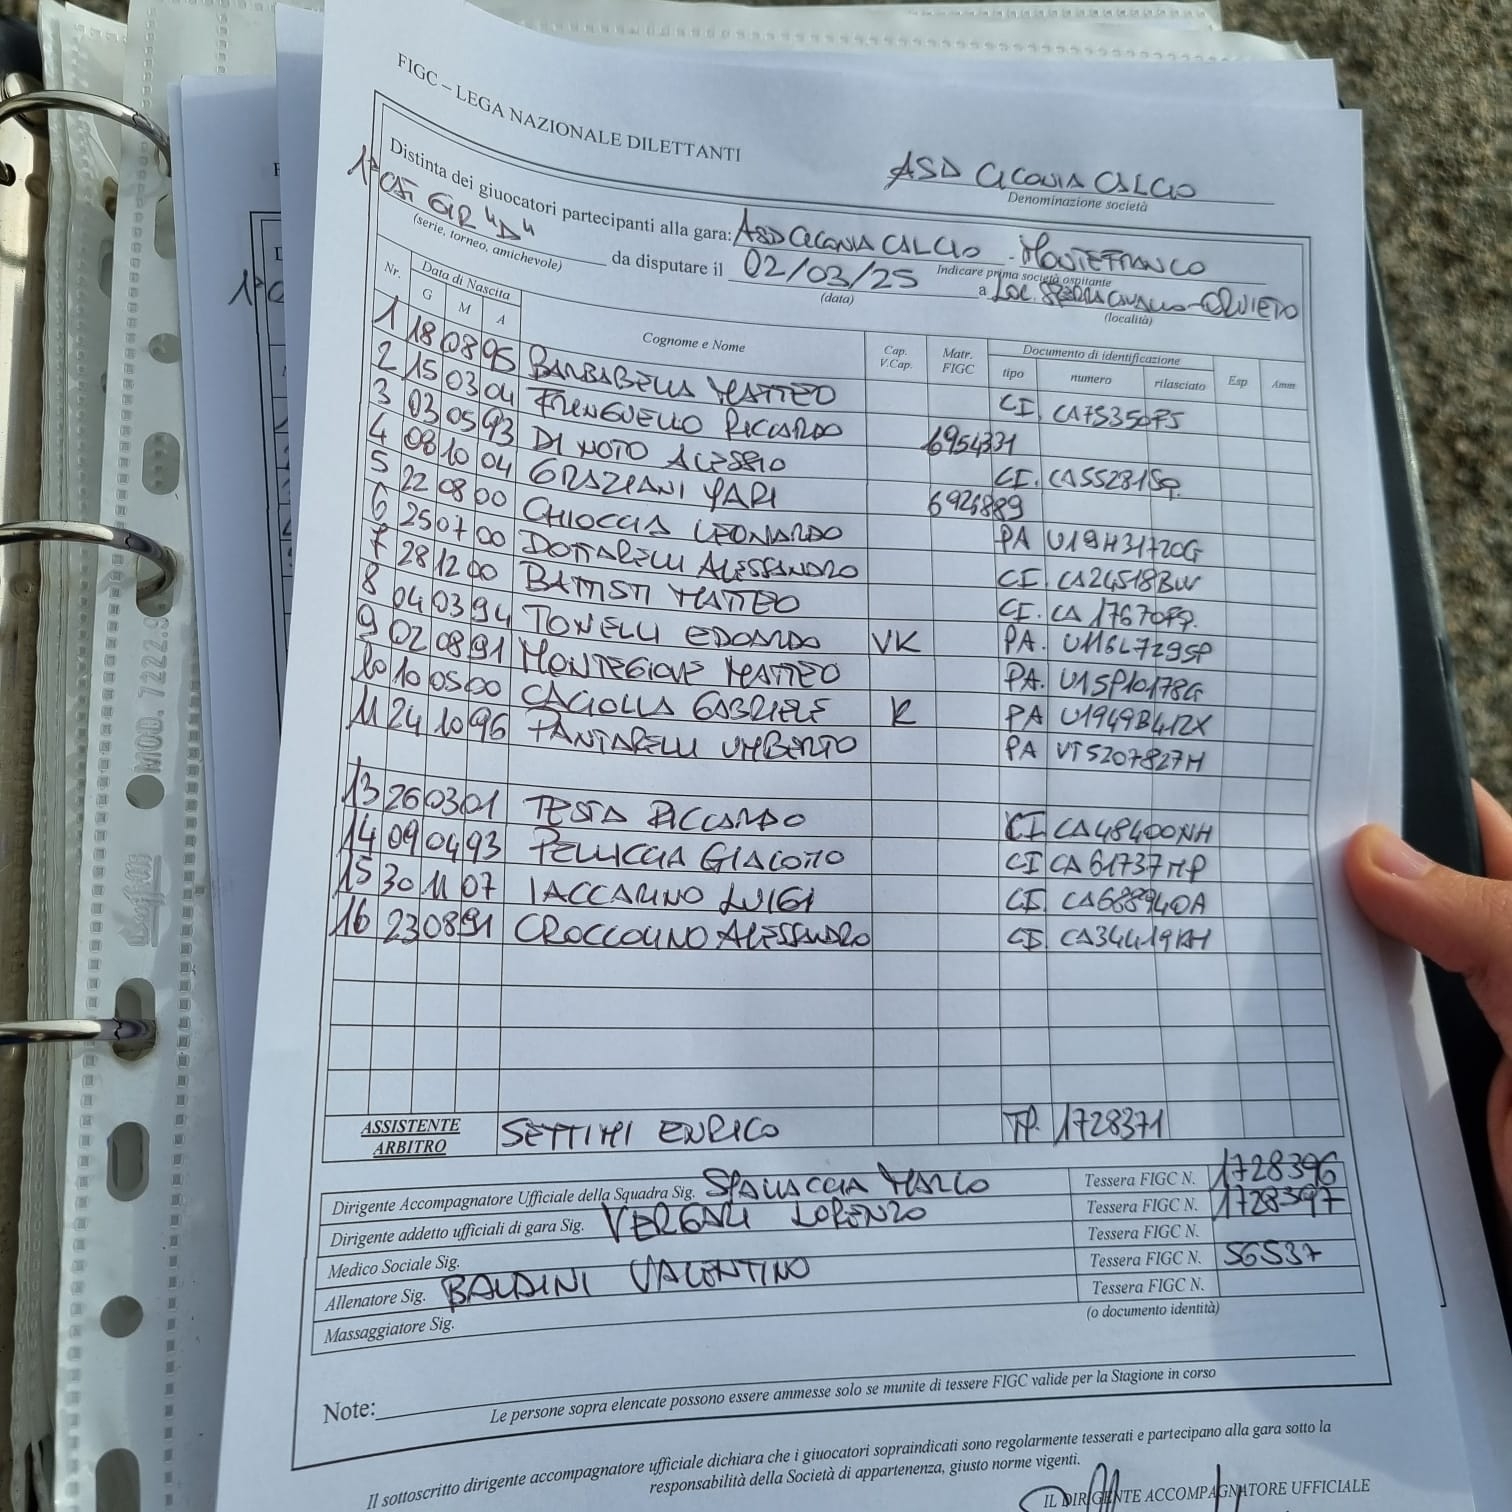 FIGC – LEGA NAZIONALE DILETTANTI
ASD CICONIA CALCIO
Denominazione società
Distinta dei giuocatori partecipanti alla gara: ASD CICONIA CALCIO - MONTEFRANCO
Indicare prima società ospitante
1ª CAT GIR "D" da disputare il 02/03/25 a LOC. - ORVIETO
(serie, torneo, amichevole) (data) (località)
Nr. Data di Nascita Cognome e Nome Cap. V.Cap. Matr. FIGC Documento di identificazione Esp Amm
G M A tipo numero rilasciato
1 18 08 95 BARBABELLA MATTEO CI CA75350FS
2 15 03 04 FRINGUELLO RICCARDO 6954331
3 03 05 93 DI NOTO ALESSIO CI. CA55281SQ
4 08 10 04 GRAZIANI YARI 6926889
5 22 08 00 CHIOCCIA LEONARDO PA U19H31720G
6 25 07 00 DOTTARELLI ALESSANDRO CI CA24518BW
7 28 12 00 BATTISTI MATTEO CI. CA
8 04 03 94 TONELLI EDOARDO VK PA. U116L7295P
9 02 08 91 MONTEGIOVE MATTEO PA. U15P10178G
10 10 05 00 CACIOLLA GABRIELE K PA U1949B412X
11 24 10 96 PANTARELLI UMBERTO PA VT5207827H
13 26 03 01 TESTA RICCARDO CI CA48400NH
14 09 04 93 PELLICCIA GIACOMO CI CA61737MP
15 30 11 07 IACCARINO LUIGI CI CA68894OA
16 23 08 91 CROCCOLINO ALESSANDRO CI
ASSISTENTE ARBITRO SETTIMI ENRICO TP. 1728371
Dirigente Accompagnatore Ufficiale della Squadra Sig. SPALLACCIA MARCO Tessera FIGC N. 1728396
Dirigente addetto ufficiali di gara Sig. VERGARI LORENZO Tessera FIGC N. 1728397
Medico Sociale Sig. Tessera FIGC N.
Allenatore Sig. BALDINI VALENTINO Tessera FIGC N. 56537
Massaggiatore Sig. Tessera FIGC N.
(o documento identità)
Note:
Le persone sopra elencate possono essere ammesse solo se munite di tessere FIGC valide per la Stagione in corso
Il sottoscritto dirigente accompagnatore ufficiale dichiara che i giuocatori sopraindicati sono regolarmente tesserati e partecipano alla gara sotto la
responsabilità della Società di appartenenza, giusto norme vigenti.
IL DIRIGENTE ACCOMPAGNATORE UFFICIALE
MOD. 7222.9